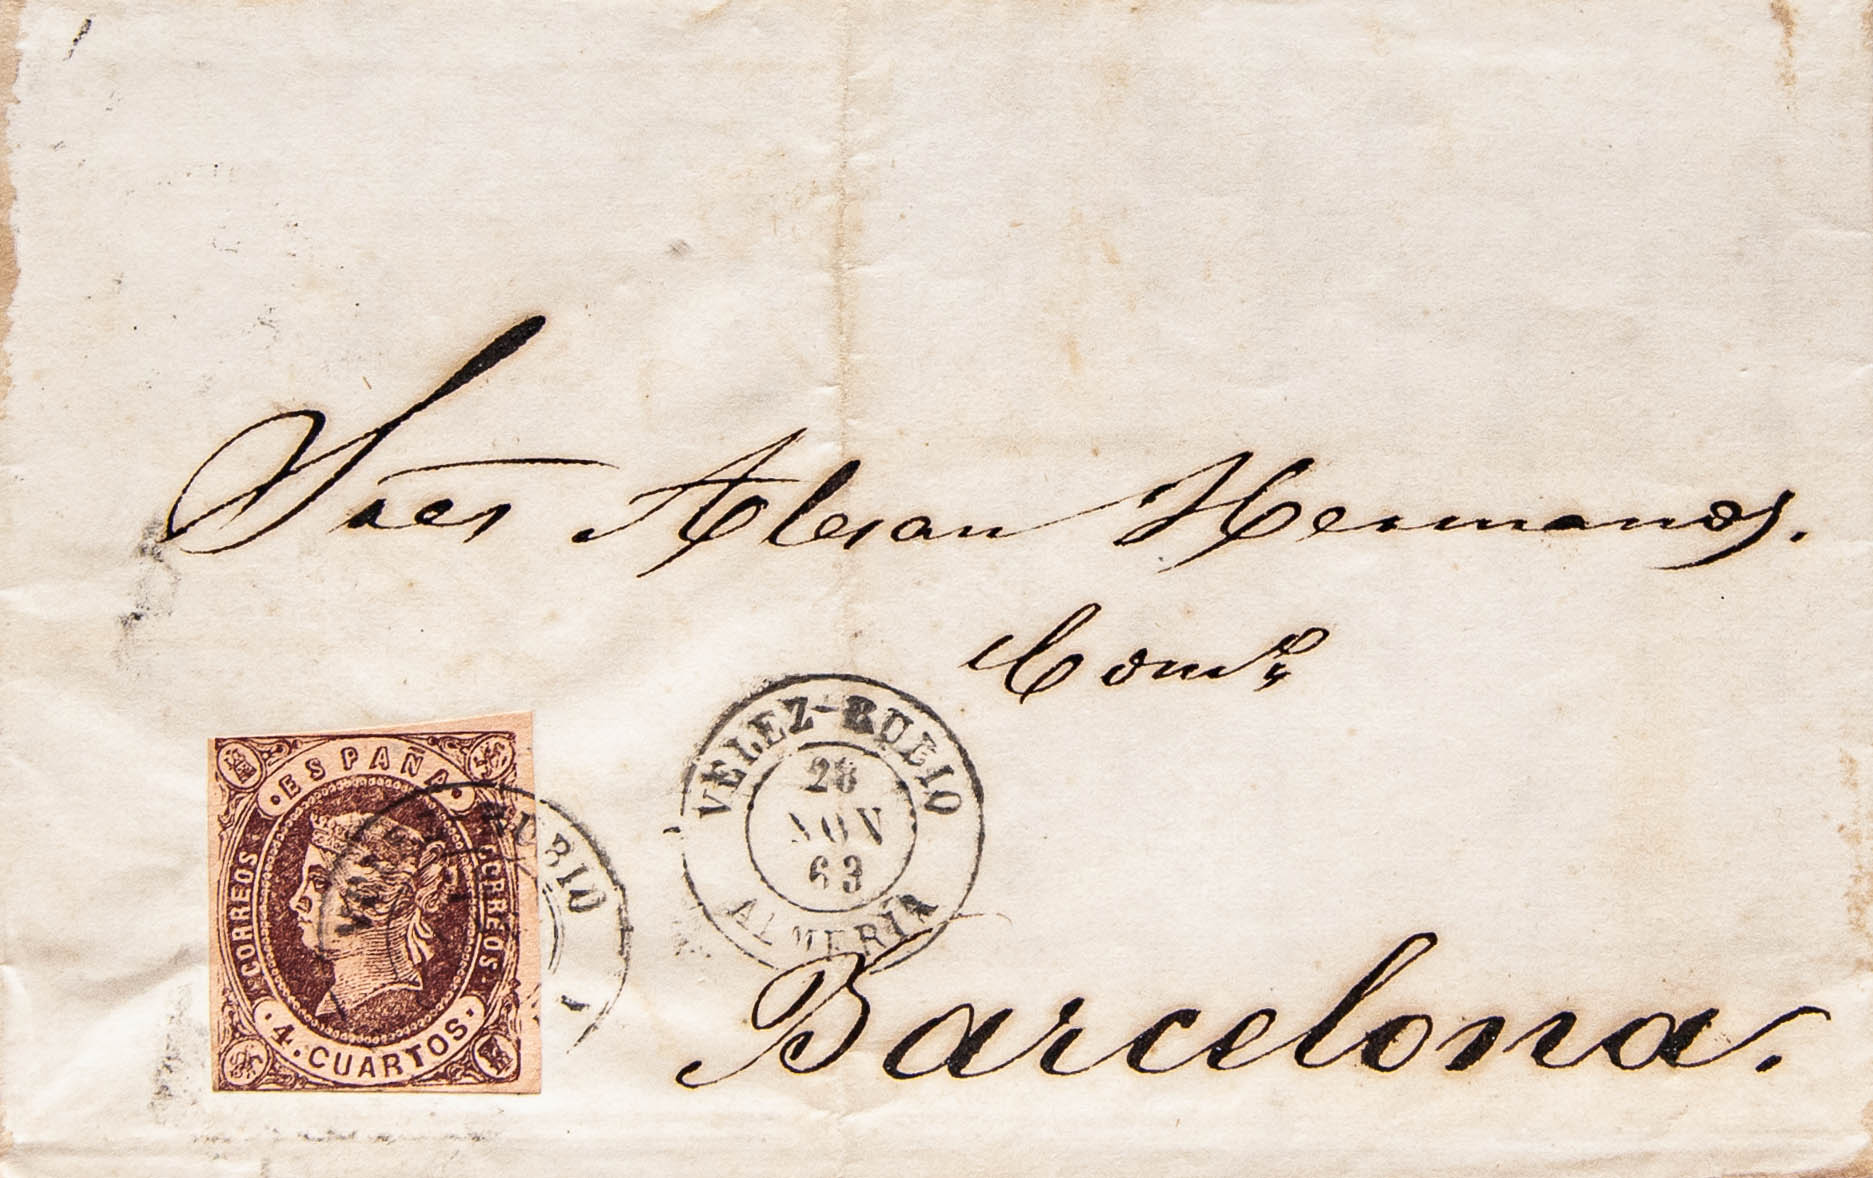 Sres Alexan Hermanos.
Barcelona.
VELEZ-RUBIO
28
NOV
63
ALMERIA
ESPAÑA
CORREOS
CORREOS
4. CUARTOS
VELEZ-RUBIO